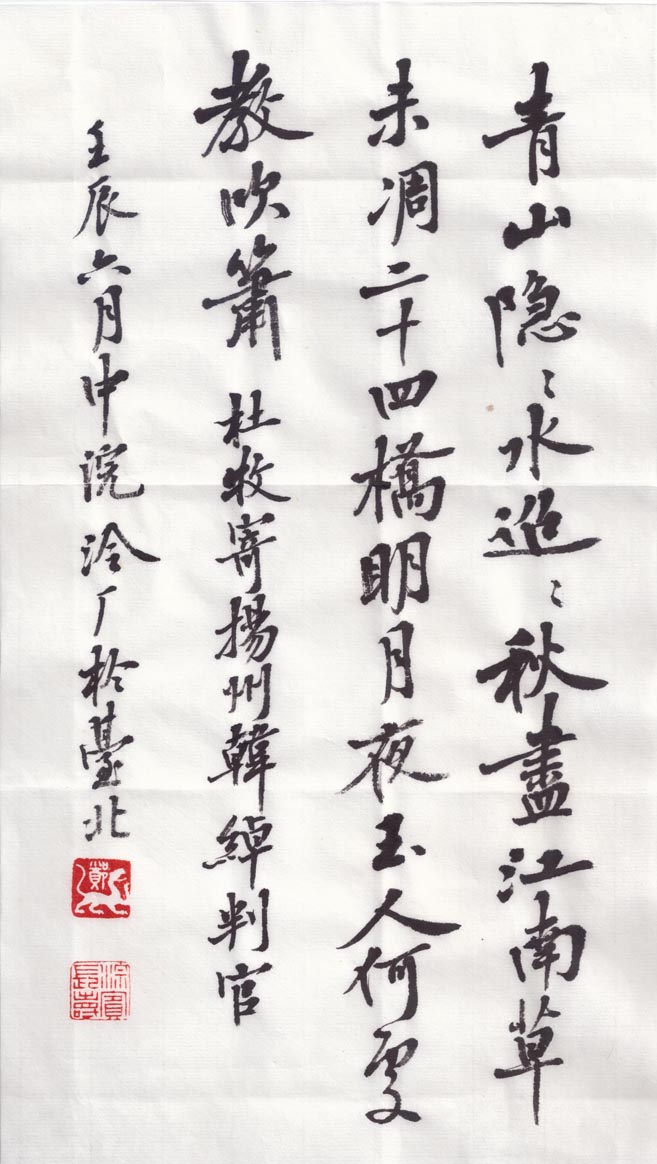 青山隐〻水迢〻秋盡江南草
未凋二十四橋明月夜玉人何處
教吹簫 杜牧寄揚州韓綽判官
壬辰六月中浣泠厂於臺北